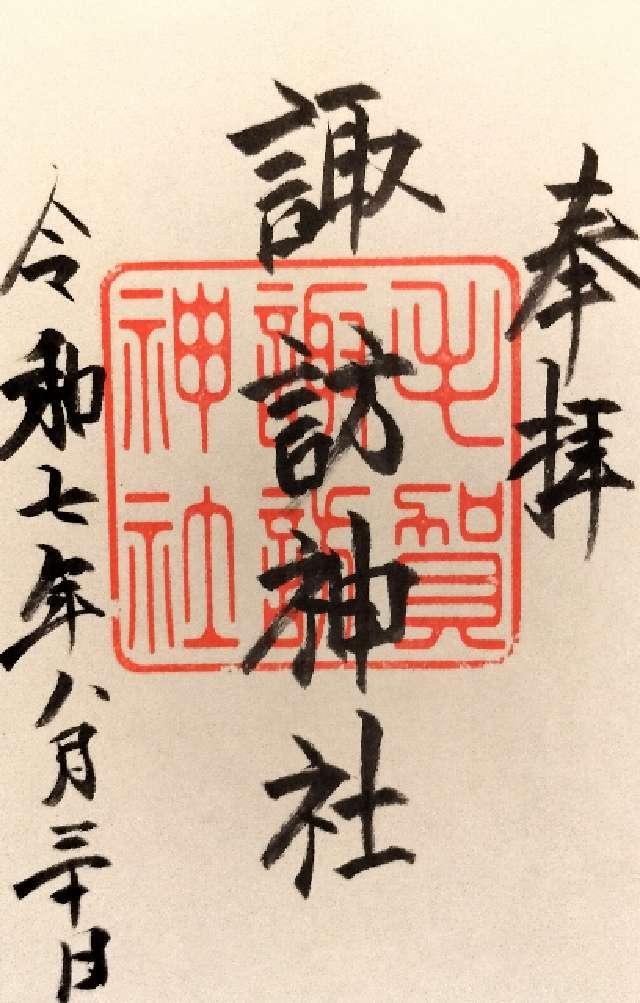 奉拝
諏訪神社
毛賀
諏訪
神社
令和七年八月三十日